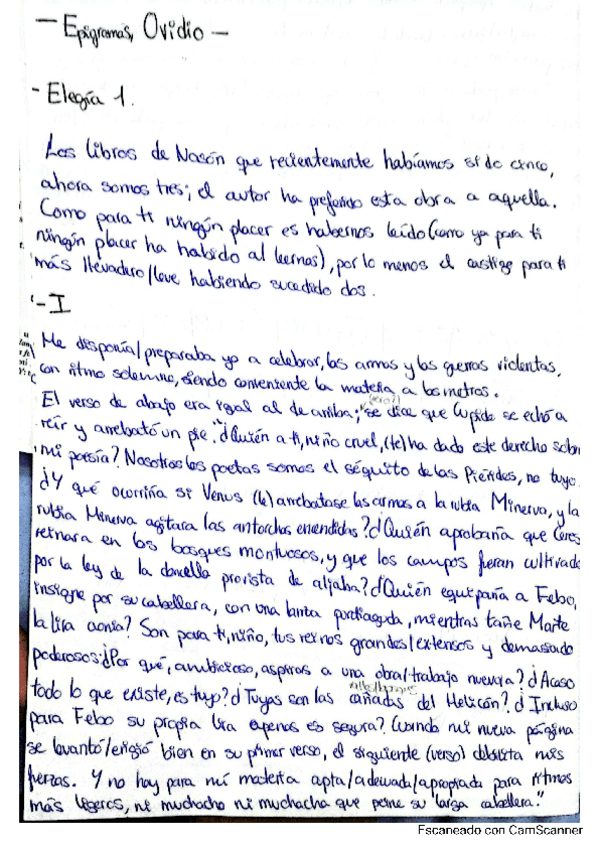 - Epigramas, Ovidio -
- Elegía 1.
Los libros de Nasón que recientemente habíamos sido cinco,
ahora somos tres; el autor ha preferido esta obra a aquella.
Como para ti ningún placer es habernos leído (como ya para ti
ningún placer ha habido al leernos), por lo menos el castigo para ti
más llevadero/leve habiendo sucedido dos.
- I
Me disponía/preparaba yo a celebrar, las armas y las guerras violentas,
con ritmo solemne, siendo conveniente la materia a los metros.
El verso de abajo era igual al de arriba; se dice que Cupido se echó a
reír y arrebató un pie. "¿Quién a ti, niño cruel, (te) ha dado este derecho sobre
mi poesía? Nosotros los poetas somos el séquito de las Piérides, no tuyo.
¿Y qué ocurriría si Venus (le) arrebatase las armas a la rubia Minerva, y la
rubia Minerva agitara las antorchas encendidas? ¿Quién aprobaría que Ceres
reinara en los bosques montuosos, y que los campos fueran cultivado
por la ley de la doncella provista de aljaba? ¿Quién equiparía a Febo,
insigne por su cabellera, con una lanza puntiaguda, mientras tañe Marte
la lira aonia? Son para ti, niño, tus reinos grandes/extensos y demasiado
poderosos: ¿Por qué, ambicioso, aspiras a una obra/trabajo nuevo/a? ¿Acaso
todo lo que existe, es tuyo? ¿Tuyas son las cañadas del Helicón? ¿Incluso
para Febo su propia lira apenas es segura? Cuando mi nueva página
se levantó/erigió bien en su primer verso, el siguiente (verso) debilita mis
fuerzas. Y no hay para mí materia apta/adecuada/apropiada para ritmos
más ligeros, ni muchacho ni muchacha que peine su larga cabellera."
Escaneado con CamScanner